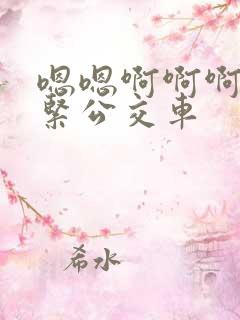 嗯嗯啊啊啊
緊公交車
希水